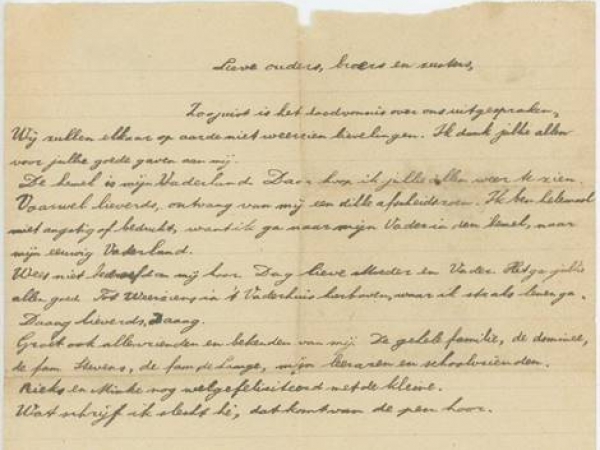 Lieve ouders, broers en zusters,
Zoojuist is het doodvonnis over ons uitgesproken.
Wij zullen elkaar op aarde niet weerzien lievelingen. Ik dank jullie allen
voor jullie goede gaven aan mij.
De hemel is mijn Vaderland. Daar hoop ik jullie allen weer te zien.
Vaarwel lieverds, ontvang van mij een dikke afscheidszoen. Ik ben helemaal
niet angstig of bedrukt, want ik ga naar mijn Vader in den hemel, naar
mijn eeuwig Vaderland.
Wees niet bedroefd om mij hoor. Dag lieve Moeder en Vader. Het ga jullie
allen goed. Tot weerziens in 't Vaderhuis hierboven, waar ik straks henen ga.
Daaag lieverds, Daaag.
Groet ook alle vrienden en bekenden van mij. De gehele familie, de dominee,
de fam Stevens, de fam. de Lange, mijn leeraren en schoolvrienden.
Rieks en Minke nog wel gefeliciteerd met de kleine.
Wat schrijf ik slecht hè, dat komt van de pen hoor.